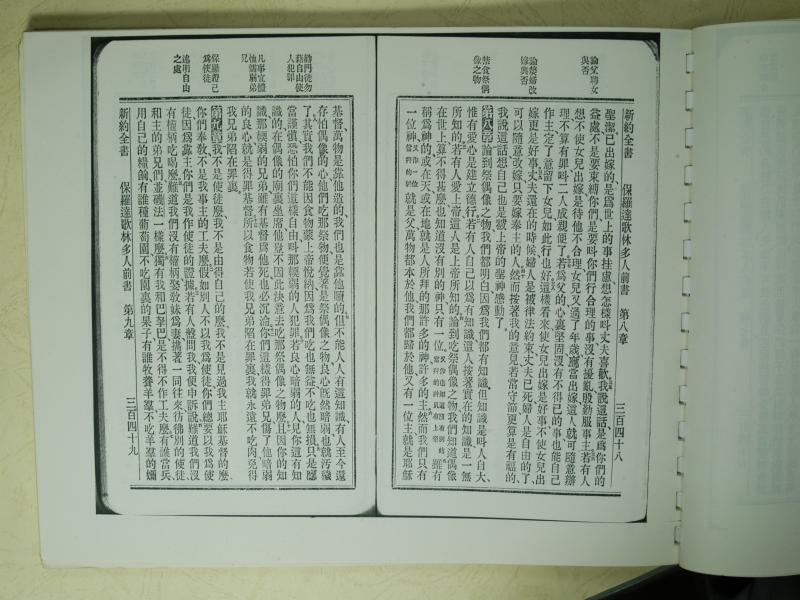 論父聘女
與否
論嫠婦改
嫁與否
禁食祭偶
像之物
新約全書 保羅達歌林多人前書 第八章 三百四十八
聖潔已出嫁的是爲世上的事挂慮想怎樣叫丈夫喜歡我說這話是爲你們的
益處不是要束縛你們是要叫你們行合理的事沒有擾亂殷勤服事主若有人
想不使女兒出嫁是待他不合理女兒又過了年歲應當出嫁這人就可隨意辦
理不算有罪叫二人成親便了若爲父的心裏堅固沒有不得已的事也能自己
作主定了意留下女兒如此行也好這樣看來使女兒出嫁是好事不使女兒出
嫁更是好事丈夫還在的時候婦人是被律法約束丈夫已死婦人是自由的了
可以隨意改嫁只要嫁奉主的人然而按著我的意見若常守節更算是有福的
我說這話想自己也是被上帝的聖神感動了
第八章論到祭偶像之物我們都明白因爲我們都有知識但知識是叫人自大
惟有愛心是建立德行若有人自己以爲有知識這人按著實在的知識是一無
所知的若有人愛上帝這人是上帝所知的論到吃祭偶像之物我們知道偶像
在世上算不得甚麽也知道沒有別的神只有一位上帝雖有
稱爲神的或在天或在地就是人所拜的那許多的神許多的主然而我們只有
一位神就是父萬物都本於他我們都歸於他又有一位主就是耶穌
勸門徒勿
藉自由使
人犯罪
凡事宜體
恤懦弱弟
兄
保羅證己
爲使徒
述明自由
之處
基督萬物是靠他造的我們也是靠他贖的但不能人人有這知識有人至今還
存怕偶像的心他們吃那祭物便覺著是祭偶像之物良心旣然暗弱也就汚穢
了其實我們不能因食物蒙上帝悅納因爲我們吃也無益不吃也無損只是應
當謹慎恐怕你們這樣自由叫那輭弱的人犯罪若良心暗弱的人見你這有知
識的在偶像的廟裏坐席他豈不因此決意去吃那祭偶像之物麽且因你的知
識那輭弱的兄弟雖有基督爲他死也必沉淪你們這樣得罪弟兄傷了他暗弱
的良心就是得罪基督所以食物若使我兄弟陷在罪裏我就永遠不吃肉免得
我兄弟陷在罪裏
第九章我不是使徒麽我不是由得自己的麽我不是見過我主耶穌基督的麽
你們奉敎不是我事主的工夫麽假如別人不以我爲使徒你們總要以我爲使
徒因爲靠主你們是我作使徒的證據若有人盤問我我便申訴說難道我們沒
有權柄吃喝麽難道我們沒有權柄娶敎妹爲妻攜著一同往來彷彿別的使徒
和主的弟兄們並磯法一樣麽獨有我和巴拏巴是不得不作工夫麽有誰當兵
用自己的糧餉有誰種葡萄園不吃園裏的果子有誰牧養羊羣不吃羊羣的嬭
新約全書 保羅達歌林多人前書 第九章 三百四十九